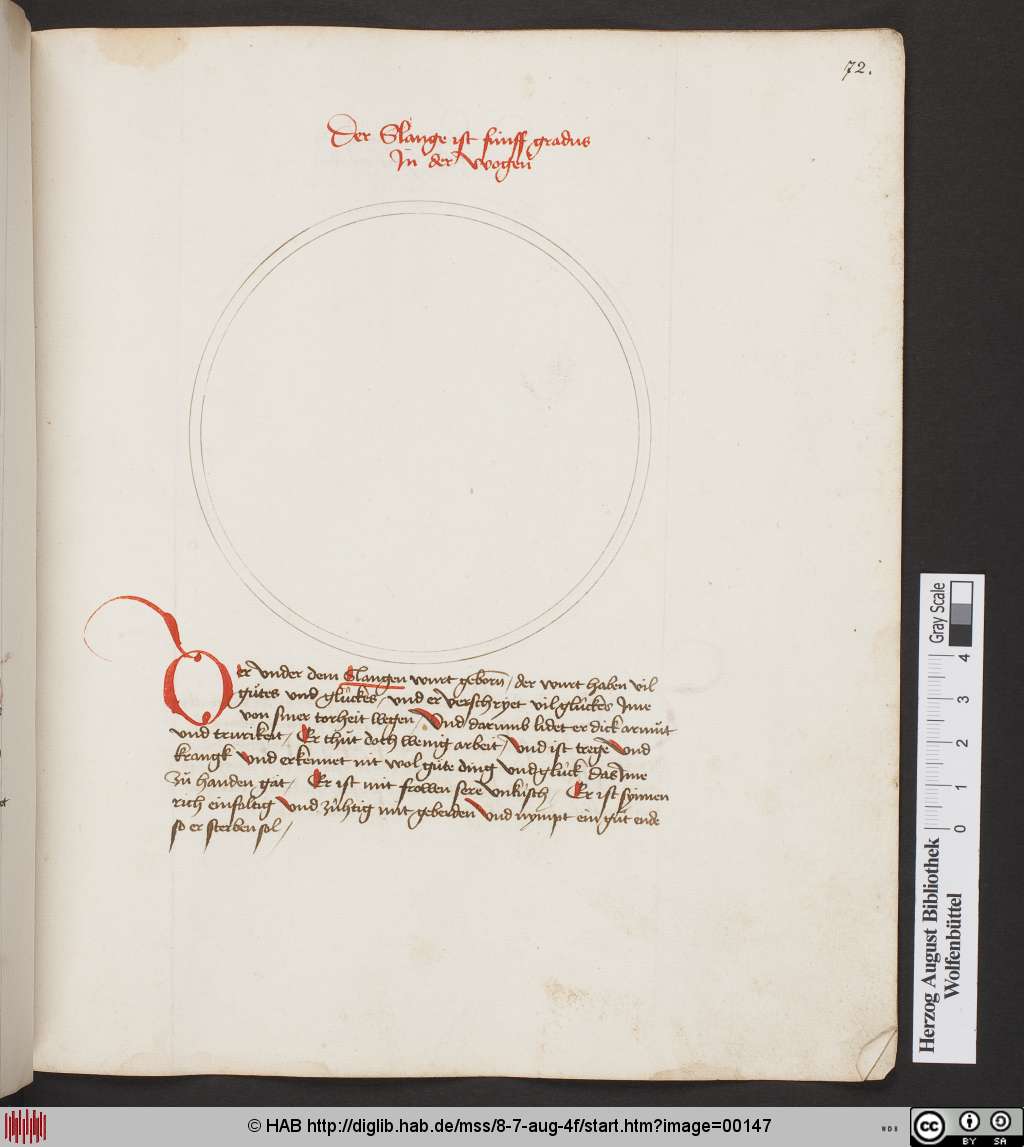 72.
Der Slange ist funff gradus
In der wogen
Der vnder dem Slangen wurt geborn / der wurt haben vil
gutes vnd gluckes / vnd er verschryet vil gluckes Ime
von siner torheit wegen / Vnd darumb lidet er dick armut
vnd trurikeit / Er thut doch wenig arbeit / vnd ist trege vnd
krangk vnd erkennet nit wol gute ding vnd gluck das Ime
zu handen gat / Er ist mit frowen sere vnkusch Er ist synnen
rich einfoltig vnd zuhtig mit geberden vnd nympt ein gut ende
so er sterben sol /
Gray Scale
0 1 2 3 4
Herzog August Bibliothek
Wolfenbüttel
© HAB http://diglib.hab.de/mss/8-7-aug-4f/start.htm?image=00147
WDB
cc BY SA